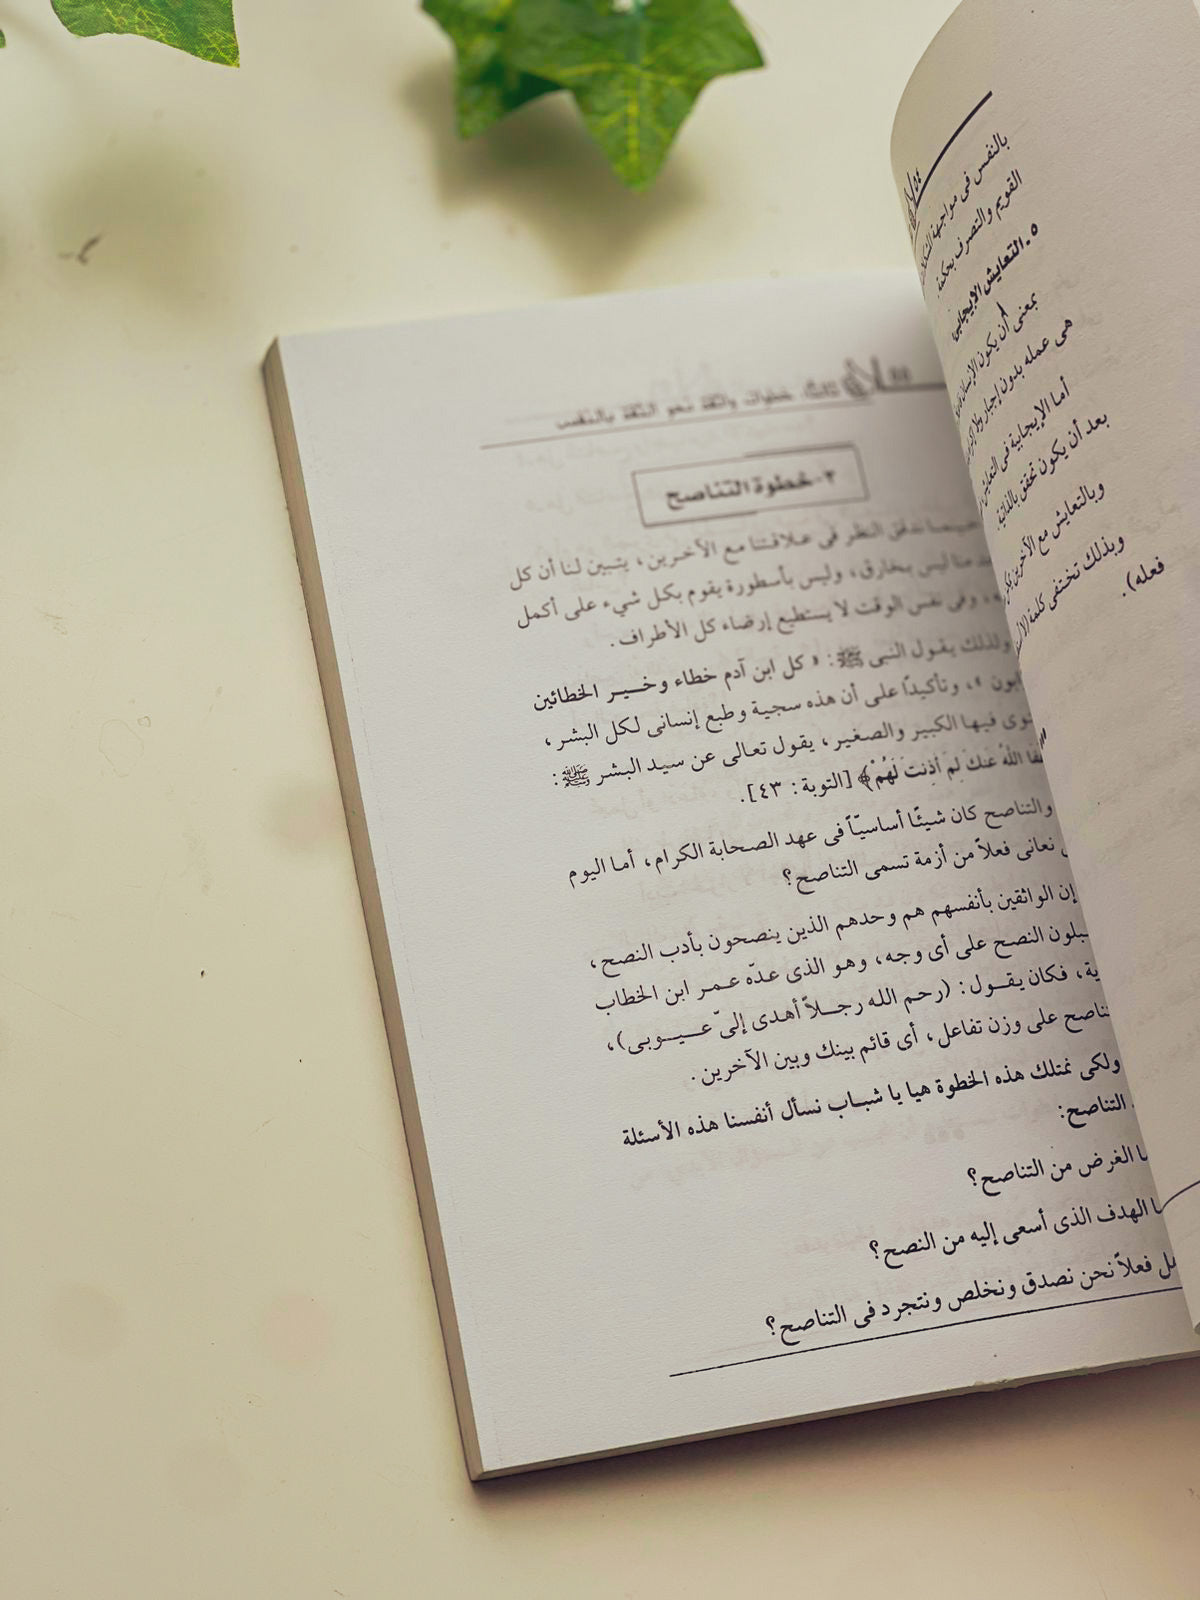 بالنفس فى مواجهة
القويم والتصرف بحكمة.
٥ـ التعايش الإيجابى:
بمعنى أن يكون الإنسان
هى عمله بدون إجبار ولا
أما الإيجابية فى التعايش
بعد أن يكون تحقق بالذاتية.
وبالتعايش مع الآخرين
وبذلك تختفى كلمة
فعله).
ثالثًا: خطوات واثقة نحو الثقة بالنفس
٢-خطوة التناصح
حينما ندقق النظر فى علاقتنا مع الآخرين، يتبين لنا أن كل
منا ليس بخارق، وليس بأسطورة يقوم بكل شيء على أكمل
وفى نفس الوقت لا يستطيع إرضاء كل الأطراف.
ولذلك يقول النبى ﷺ: « كل ابن آدم خطاء وخير الخطائين
»، وتأكيدًا على أن هذه سجية وطبع إنسانى لكل البشر،
فيها الكبير والصغير، يقول تعالى عن سيد البشر ﷺ:
اللَّهُ عَنكَ لِمَ أَذِنتَ لَهُمْ﴾ [التوبة: ٤٣].
والتناصح كان شيئًا أساسيّاً فى عهد الصحابة الكرام، أما اليوم
نعانى فعلاً من أزمة تسمى التناصح؟
إن الواثقين بأنفسهم هم وحدهم الذين ينصحون بأدب النصح،
النصح على أى وجه، وهو الذى عدّه عمر ابن الخطاب
، فكان يقول: (رحم الله رجلاً أهدى إلىّ عيوبى)،
على وزن تفاعل، أى قائم بينك وبين الآخرين.
ولكى نمتلك هذه الخطوة هيا يا شباب نسأل أنفسنا هذه الأسئلة
التناصح:
الغرض من التناصح؟
الهدف الذى أسعى إليه من النصح؟
فعلاً نحن نصدق ونخلص ونتجرد فى التناصح؟